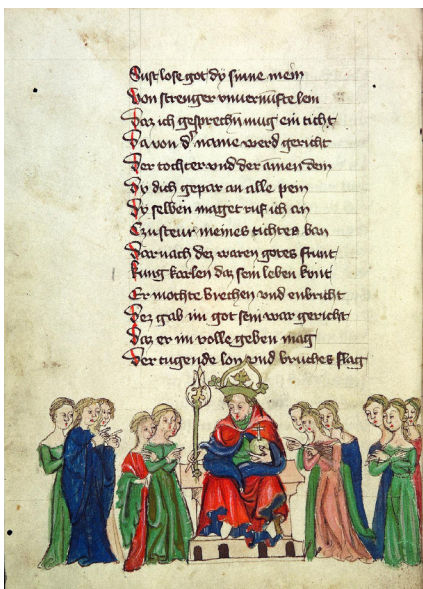 Sust lose got dy sinne mein
Von strenger vnvernufte lein
Daz ich gesprechn mug ein ticht
Da von dʼ name werd gericht
Der tochter vnd der amen dein
Dy dich gepar an alle pein
Dy selben maget ruf ich an
Czu steur meines tichtes ban
Darnach dez waren gotes frunt
kung karlen daz sein leben kunt
Er mochte brechen vnd enbricht
Dez gab im got sein war gericht
Daz er im volle geben mag
Der tugende lon vnd bruches slag